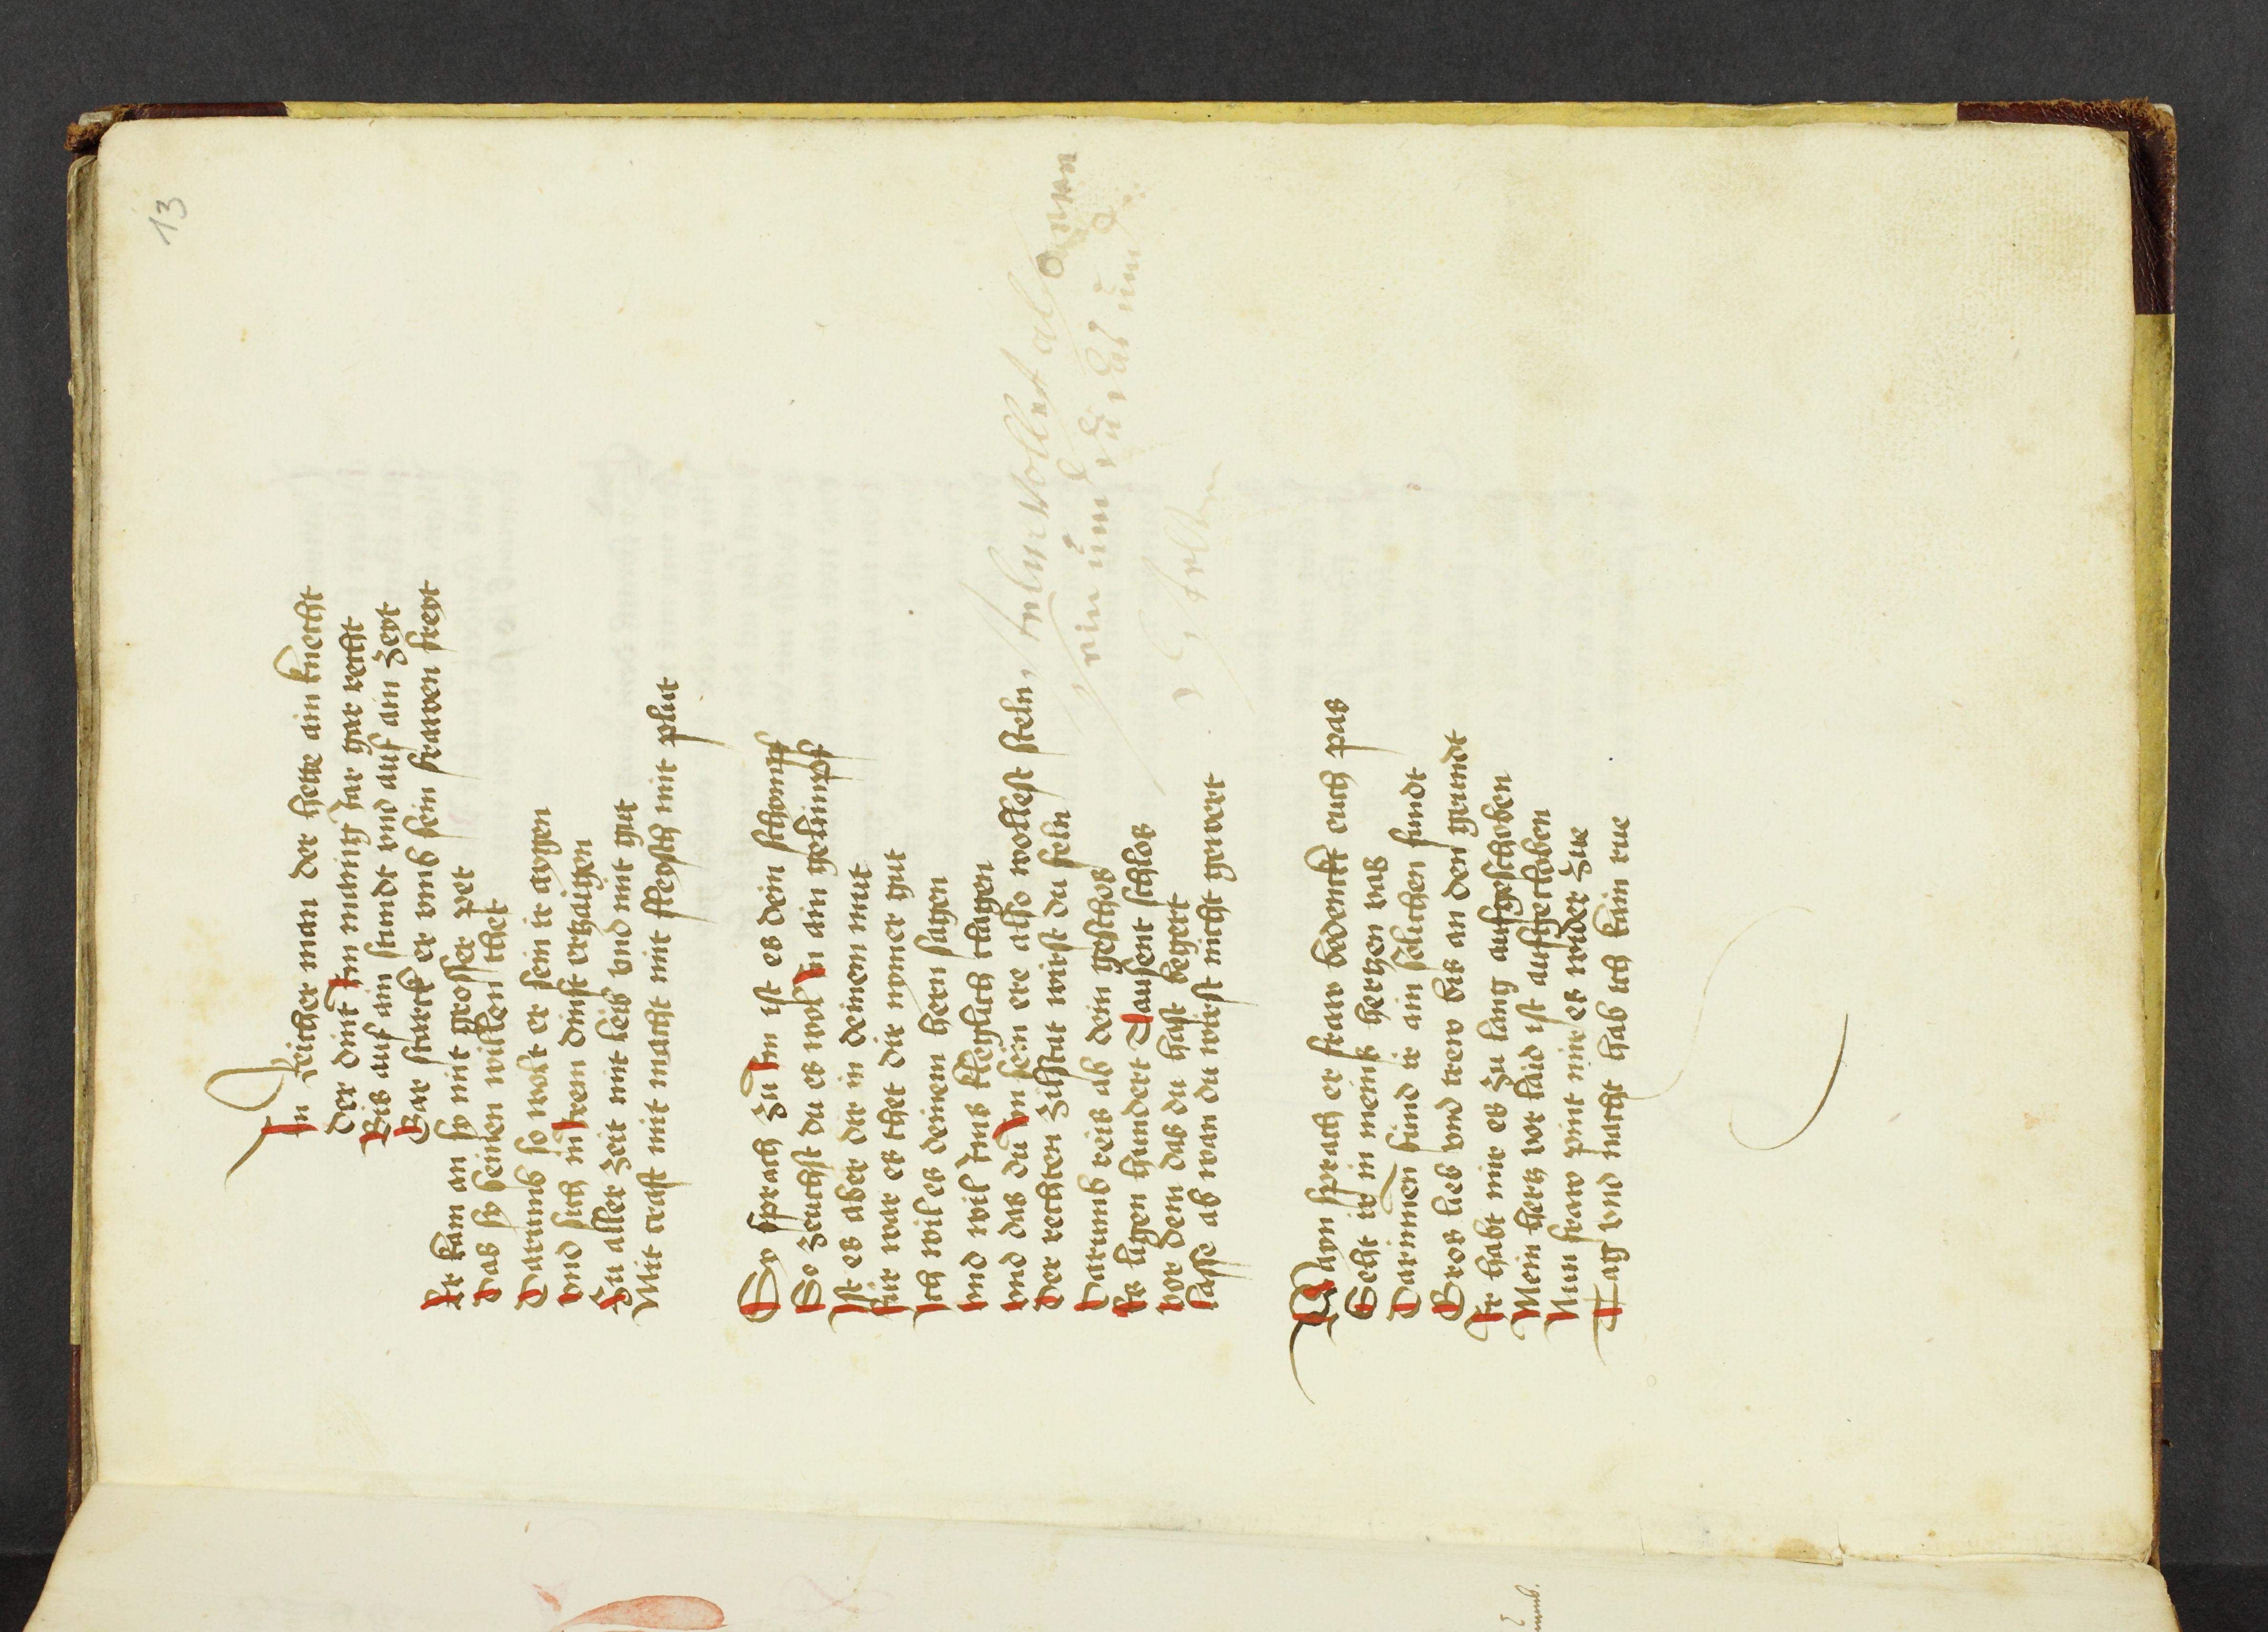 13
In reicher man der hette ain knecht
Der dint Im mainig Jar gar recht
Bis auf ain stundt vnd auf ain zeyt
Gar starck er vmb sein frawen freyt
Er kam an sy mit grosser pet
Das sy seinen willen thet
Darumb so wolt er sein ir aygen
vnd sich in Irem dinst ertzaigen
Zu aller zeit mit leib vnd mit gut
Mit craft mit macht mit fleysch mit plut
Sy sprach zu Im ist es dein schompf
So zeuchst du es wol In ain gelimpf
Ist es aber dir in deinem mut
für war es thet dir nymer gut
Ich wil es deinem hern sagen
vnd wil Ims kleglich clagen
vnd das du Im sein ere also wollest steln
Der rechten zilstat wirst du feln
Darumb reis ab dein geschos
Es ligen hundert Tausent schlos
vor dem das du hast begert
lasse ab wan du wirst nicht gewert
Nayn sprach er fraw bedenckt euch pas
Secht ir in meins hertzen vas
Darinnen find ir ain solichen fundt
Gros lieb vnd trew bis an den grundt
Ir habt mir es zu lang aufgeschoben
Mein hertz vor laid ist aufgecloben
Nun fraw pint mir es wider zue
Tag vnd nacht hab ich kain rue